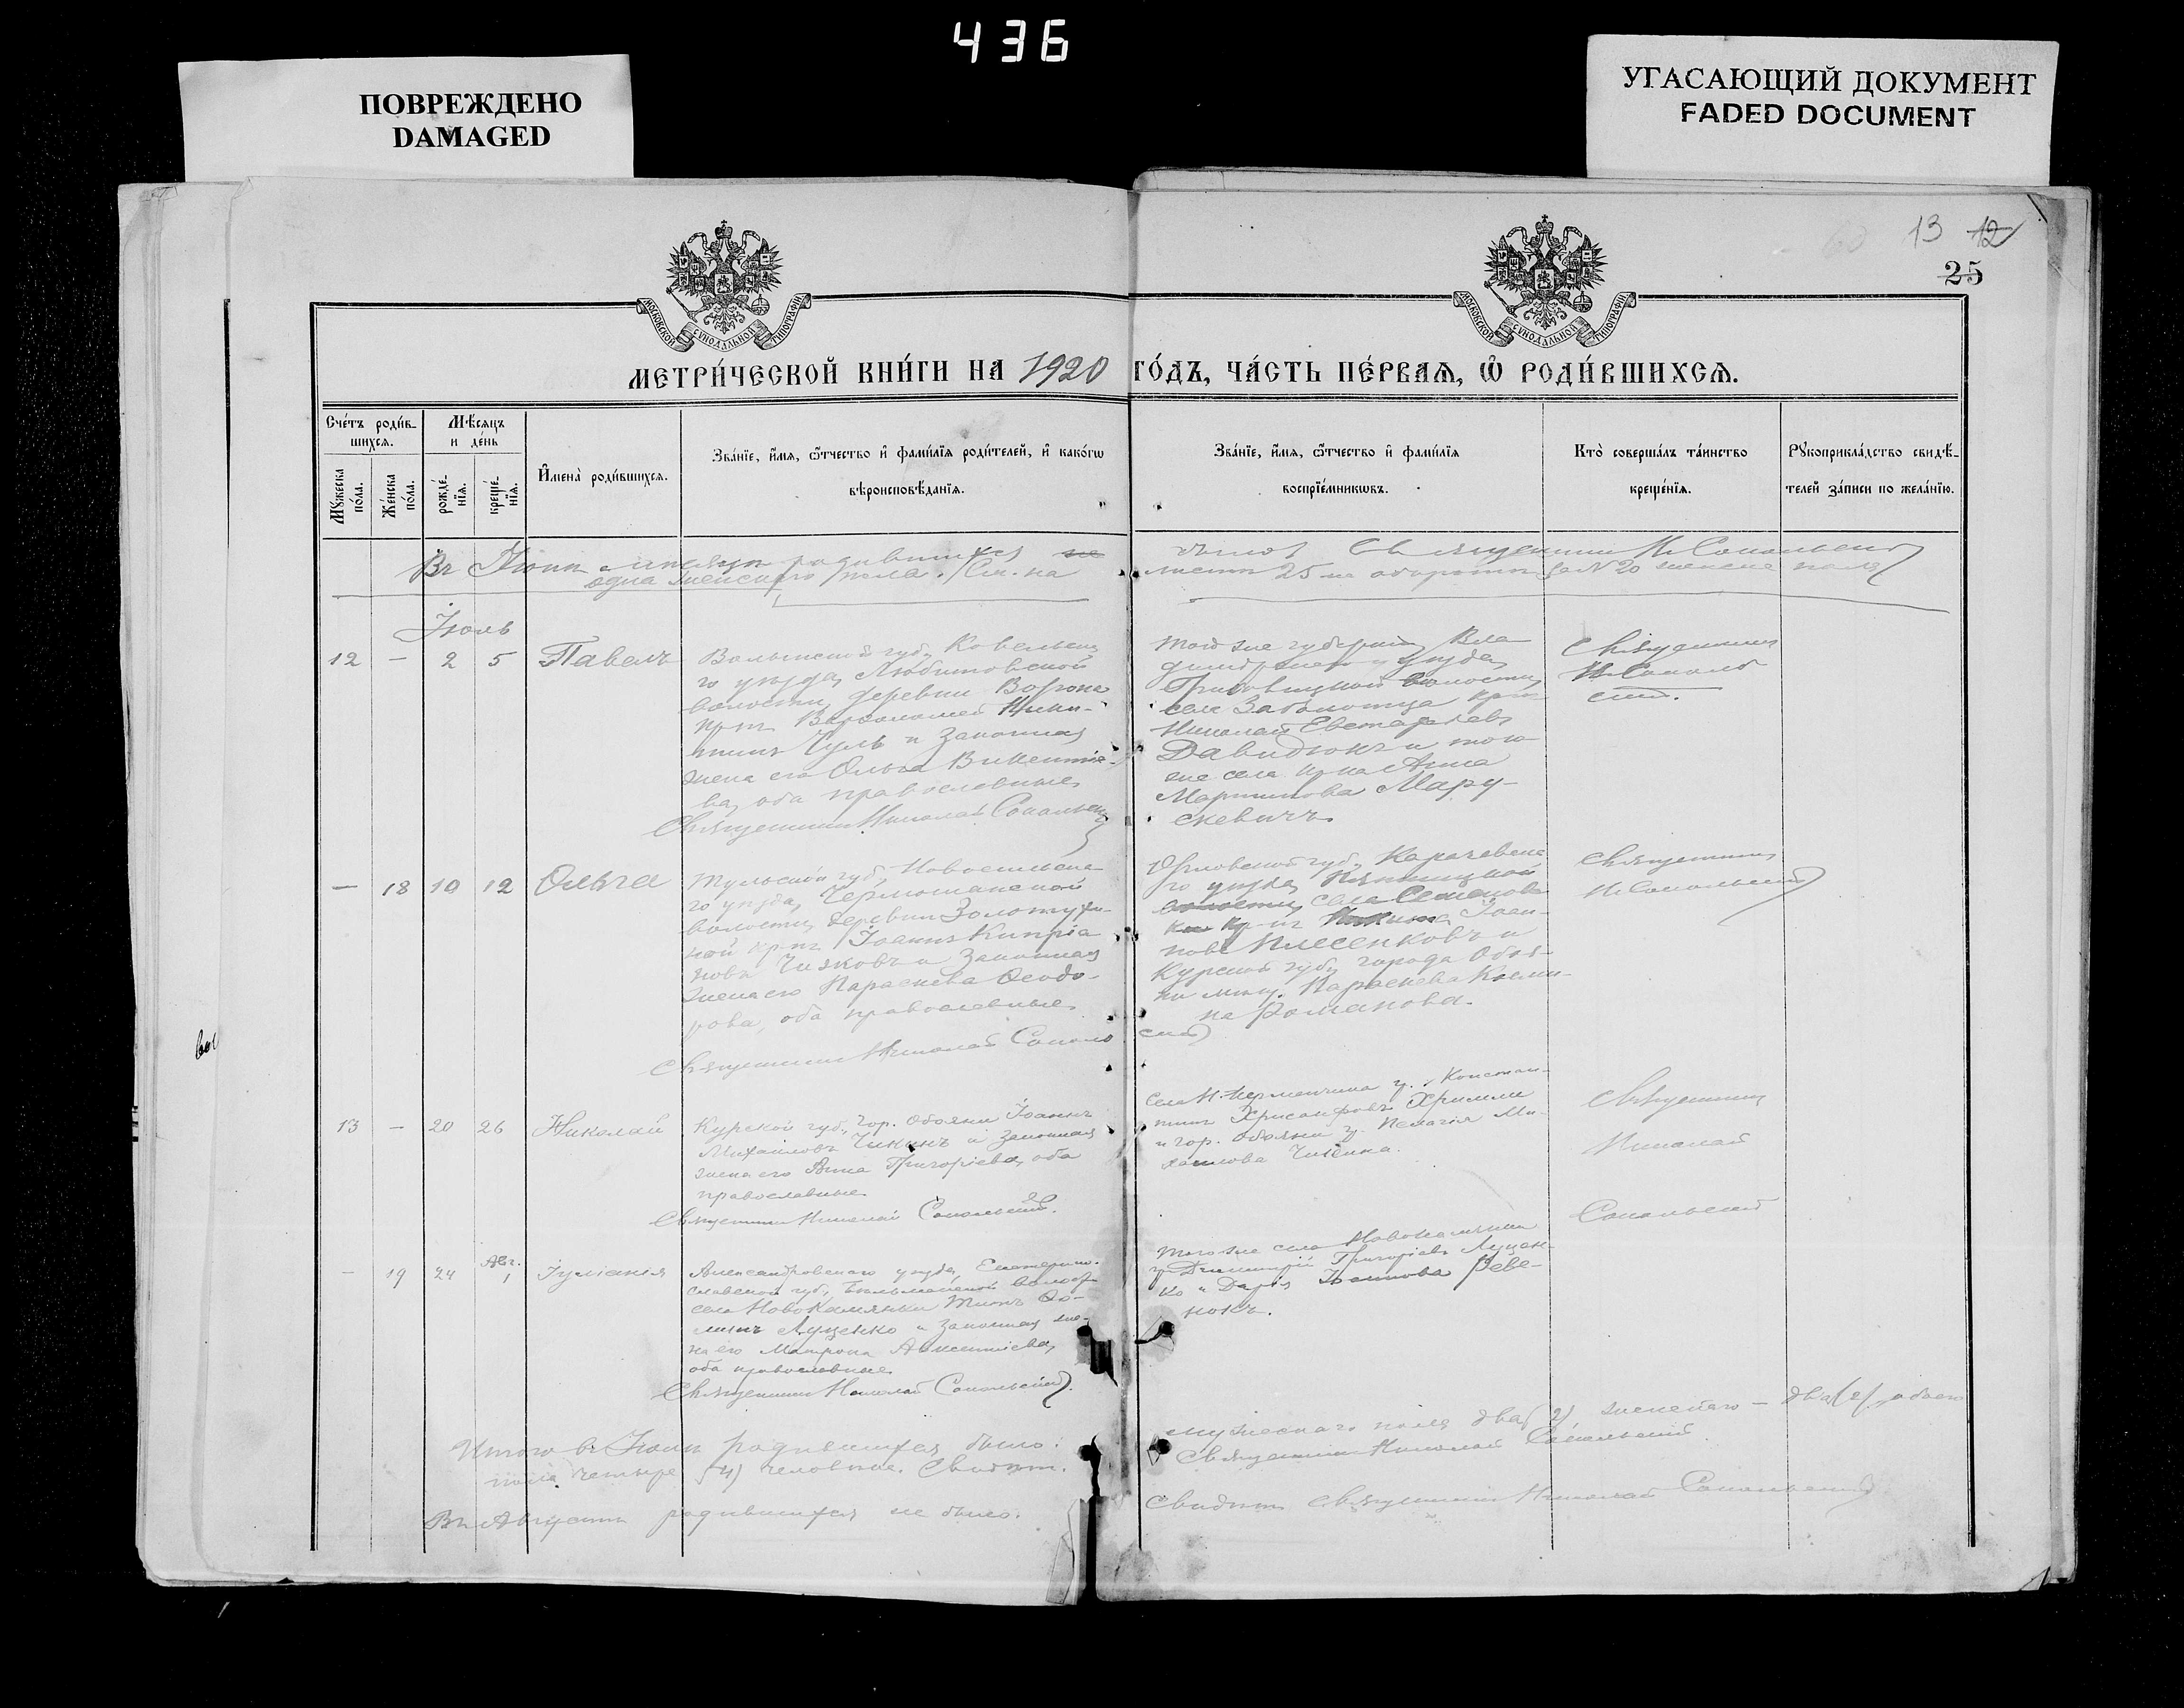 436
ПОВРЕЖДЕНО
DAMAGED
УГАСАЮЩИЙ ДОКУМЕНТ
FADED DOCUMENT
13 12
25
МОСКОВСКОЙ СѴНОДАЛЬНОЙ ТИПОГРАФІИ
МОСКОВСКОЙ СѴНОДАЛЬНОЙ ТИПОГРАФІИ
МЕТРИ́ЧЕСКОЙ КНИ́ГИ НА 1920 ГО́ДЪ, ЧА́СТЬ ПЕ́РВАЯ, Ѡ РОДИ́ВШИХСЯ.
Сче́тъ роди́в-
шихся.
Мѣ́сяцъ
и де́нь
Мꙋ́жеска по́ла.
Же́нска по́ла.
рожде́-
нїя.
креще́-
нїя.
И҆мена̀ роди́вшихся.
Зва́нїе, и҆́мя, ѻ҆́тчество и҆ фами́лїя роди́телей, и҆ како́гѡ
вѣроисповѣ́данїя.
Зва́нїе, и҆́мя, ѻ҆́тчество и҆ фами́лїя
воспрїе́мникѡвъ.
Кто̀ соверша́лъ та́инство
креще́нїя.
Рꙋкоприкла́дство свидѣ́-
телей за́писи по жела́нїю.
Въ Іюнѣ мѣсяцѣ родившихся не было Священникъ Н. Сокольскій
одна женскаго пола. См. на листѣ 25 на оборотѣ за № 20 женск. пола
Іюль
12 — 2 5 Павелъ
Волынской губ., Ковельска-
го уѣзда, Любитовской
волости, деревни Ворона
кр-нъ Варѳоломей
Чуль и законная
жена его Ольга Викентіе-
ва, оба православные
Священникъ Николай Сокольскій
Той же губерніи, Вла-
димірскаго уѣзда,
Грибовицкой волости,
села Заболотца кр-нъ
Николай Евстафіевъ
Давидюкъ и того
же села кр-ка Анна
Мартинова Мару-
скевичъ.
Священникъ
Н. Соколь-
скій.
— 18 10 12 Ольга
Тульской губ., Новосильска-
го уѣзда,
волости, деревни Золотухи-
ной кр-нъ Іоаннъ Кипріа-
новъ Чижовъ и законная
жена его Параскева Ѳеодо-
рова, оба православные.
Священникъ Николай Соколь-
скій
Орловской губ., Карачевска-
го уѣзда,
волости, села Семенова
кр-нъ Іоан-
новъ Плесенковъ и
Курской губ., города Обоя-
ни мѣщ. Параскева Косми-
на Романова.
Священникъ
Н. Сокольскій
13 — 20 26 Николай
Курской губ., гор. Обояни Іоаннъ
Михайловъ Чикинъ и законная
жена его Анна Григоріева, оба
православные
Священникъ Николай Сокольскій.
Села гр. Констан-
тинъ Хрисанфовъ
и гор. Обояни гр. Пелагія Ми-
хайлова Чикина.
Священникъ
Николай
Сокольскій
— 19 24 Авг. 1 Іуліанія
Александровскаго уѣзда, Екатерино-
славской губ., Бельманской волости
села Новокамянки Титъ Ѳо-
минъ Луценко и законная же-
на его Матрона Авксентіева,
оба православные
Священникъ Николай Сокольскій.
Того же села Новокамянки
гр. Димитрій Григоріевъ Луцен-
ко и Дарія Іоаннова Реве-
нокъ.
Итого въ Іюлѣ родившихся было: мужескаго пола два (2), женскаго — два (2), обоего
пола четыре (4) человѣка. Свидѣт. Священникъ Николай Сокольскій.
Въ Августѣ родившихся не было. Свидѣт. Священникъ Николай Сокольскій